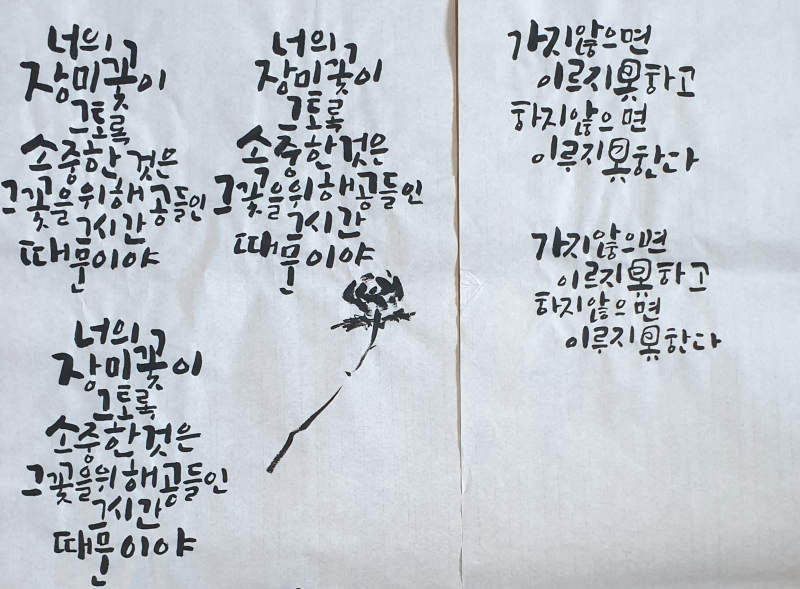 너의
장미꽃이
그토록
소중한 것은
그꽃을위해공들인
그시간
때문이야
너의
장미꽃이
그토록
소중한것은
그꽃을위해공들인
그시간
때문이야
너의
장미꽃이
그토록
소중한것은
그꽃을위해공들인
그시간
때문이야
가지않으면
이르지못하고
하지않으면
이루지못한다
가지않으면
이르지못하고
하지않으면
이루지못한다